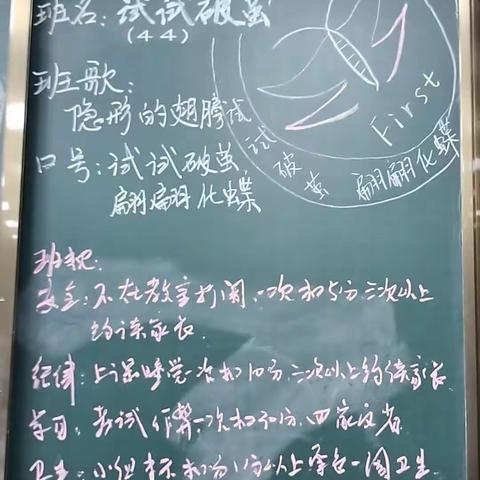 班名：试试破茧
(44)
班歌：
隐形的翅膀
口号：试试破茧，
翩翩化蝶
First
试试破茧 翩翩化蝶
班规：
安全：不在教室打闹，一次扣5分，三次以上
约谈家长.
纪律：上课睡觉一次扣10分，三次以上约谈家长.
学习：考试作弊一次扣20分，
卫生：小组未扫扣分，以上承包一周卫生